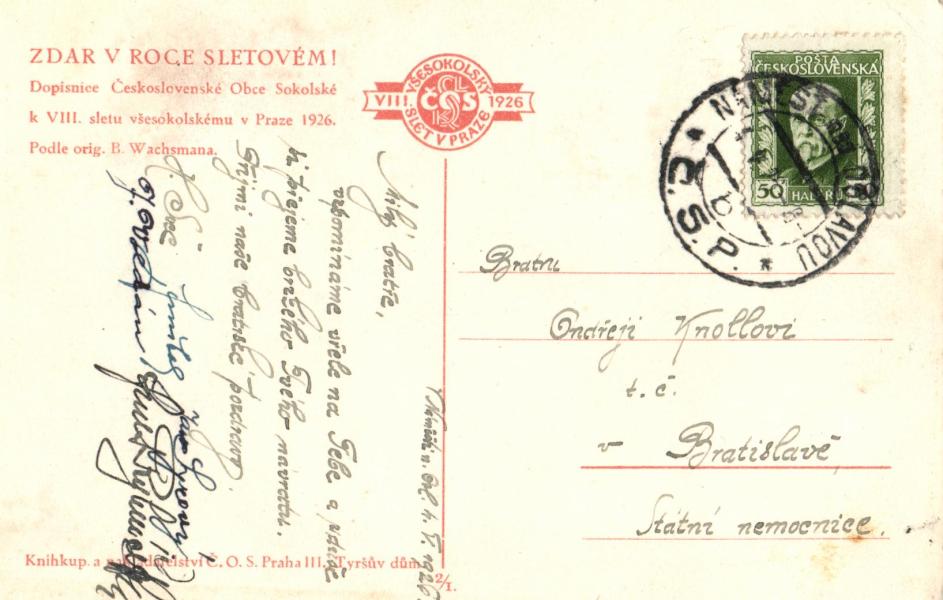 ZDAR V ROCE SLETOVÉM!
Dopisnice Československé Obce Sokolské
k VIII. sletu všesokolskému v Praze 1926.
Podle orig. B. Wachsmana.
VŠESOKOLSKÝ
VIII. ČOS 1926
SLET V PRAZE
POŠTA
ČESKOSLOVENSKÁ
50 HALÉŘŮ 50
NÁMĚŠŤ OSLAVOU
Č.S.P.
Milý bratře,
vzpomínáme vřele na Tebe a
přejeme brzkého Tvého návratu.
Přijmi naše bratrské pozdravy.
1926
Bratru
Ondřeji Knollovi
t. č.
v Bratislavě
Státní nemocnice.
Knihkup. a nakladatelství Č. O. S. Praha III. Tyršův dům
2/I.